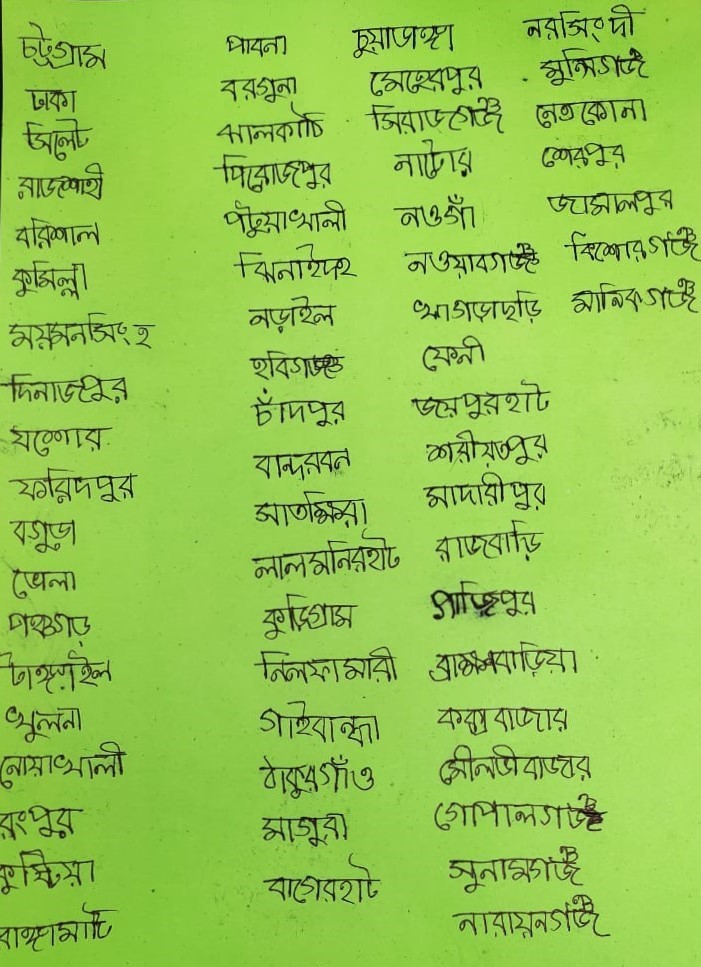 চট্টগ্রাম
ঢাকা
সিলেট
রাজশাহী
বরিশাল
কুমিল্লা
ময়মনসিংহ
দিনাজপুর
যশোর
ফরিদপুর
বগুড়া
ভোলা
পঞ্চগড়
টাঙ্গাইল
খুলনা
নোয়াখালী
রংপুর
কুষ্টিয়া
রাঙ্গামাটি
পাবনা
বরগুনা
ঝালকাঠি
পিরোজপুর
পটুয়াখালী
ঝিনাইদহ
নড়াইল
হবিগঞ্জ
চাঁদপুর
বান্দরবন
সাতক্ষিরা
লালমনিরহাট
কুড়িগ্রাম
নিলফামারী
গাইবান্ধা
ঠাকুরগাঁও
মাগুরা
বাগেরহাট
চুয়াডাঙ্গা
মেহেরপুর
সিরাজগঞ্জ
নাটোর
নওগাঁ
নওয়াবগঞ্জ
খাগড়াছড়ি
ফেনী
জয়পুরহাট
শরীয়তপুর
মাদারীপুর
রাজবাড়ি
গাজিপুর
ব্রাহ্মণবাড়িয়া
কক্সবাজার
মৌলভীবাজার
গোপালগঞ্জ
সুনামগঞ্জ
নারায়নগঞ্জ
নরসিংদী
মুন্সিগঞ্জ
নেত্রকোনা
শেরপুর
জামালপুর
কিশোরগঞ্জ
মানিকগঞ্জ